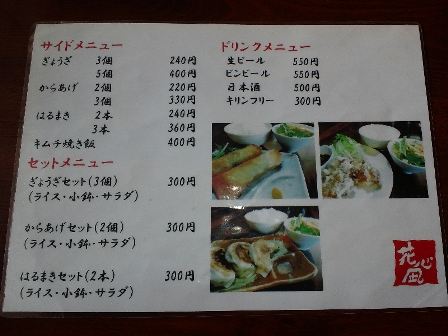 サイドメニュー
ぎょうざ 3個 240円
5個 400円
からあげ 2個 220円
3個 330円
はるまき 2本 240円
3本 360円
キムチ焼き飯 400円
セットメニュー
ぎょうざセット(3個) 300円
(ライス・小鉢・サラダ)
からあげセット(2個) 300円
(ライス・小鉢・サラダ)
はるまきセット(2本) 300円
(ライス・小鉢・サラダ)
ドリンクメニュー
生ビール 550円
ビンビール 550円
日本酒 500円
キリンフリー 300円
花心凪